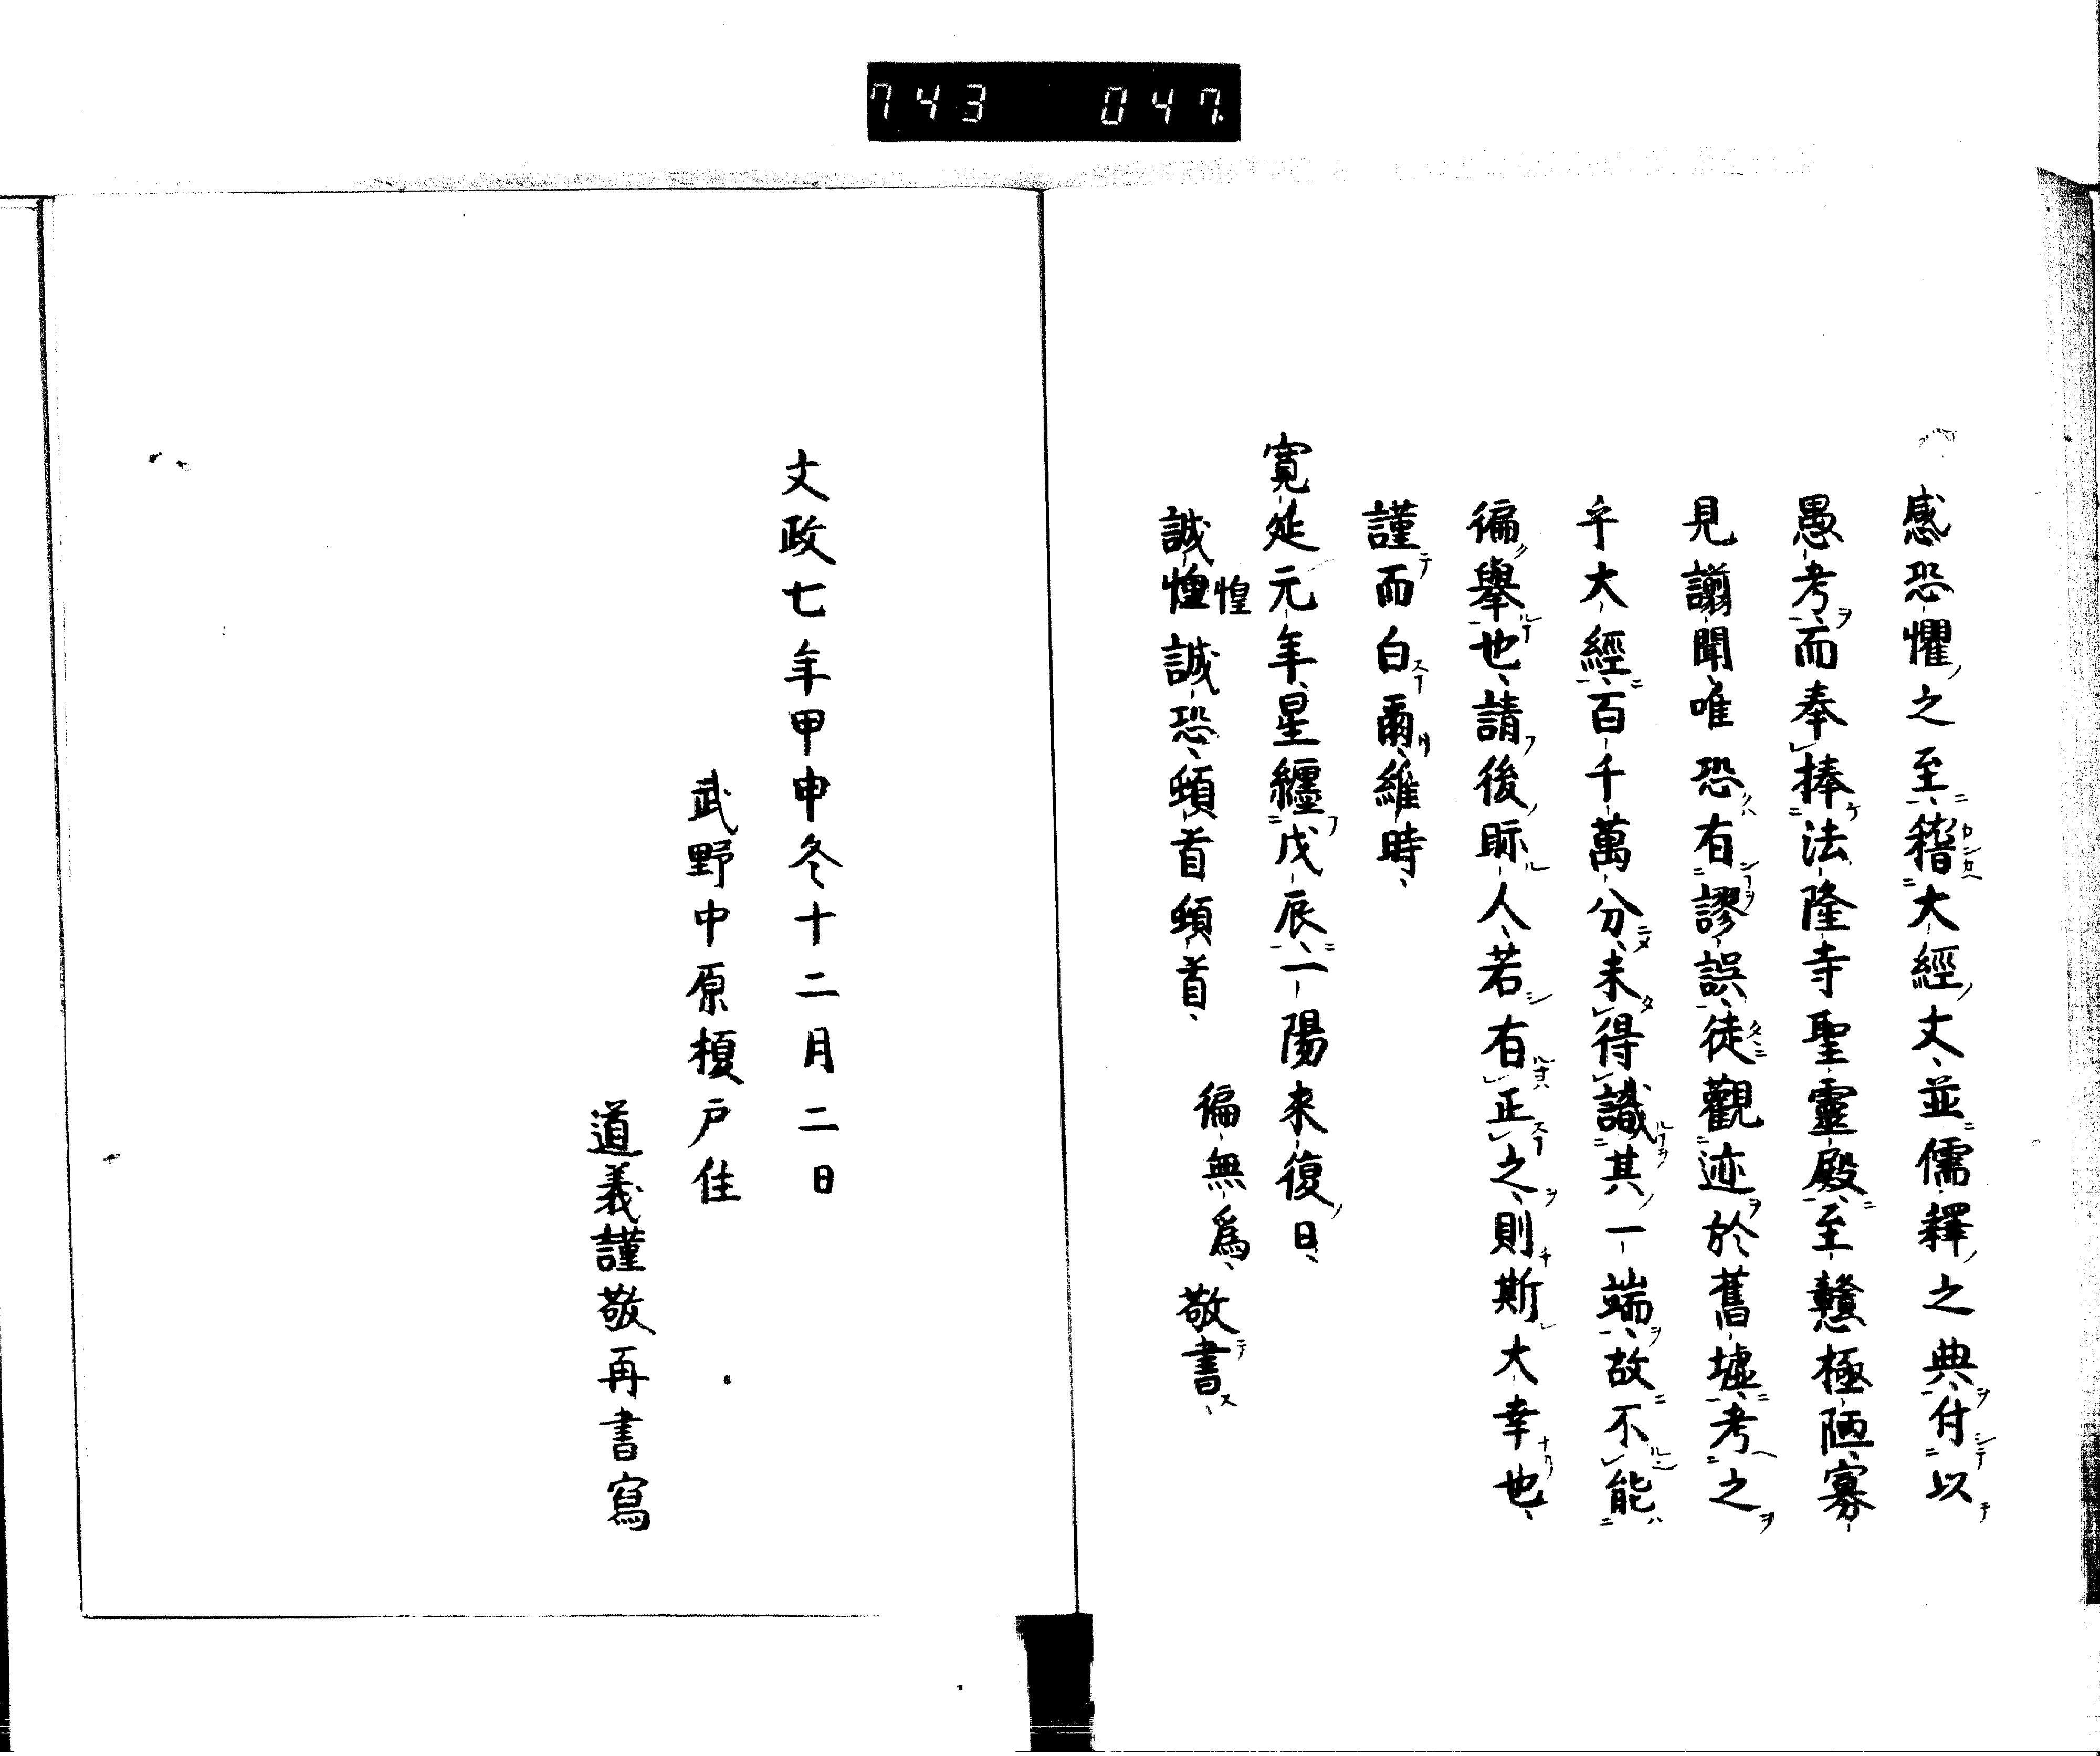 743 047
感恐懼之至稽大經文並儒釋之典付以
愚考而奉捧法隆寺聖靈殿至戇極陋寡
見謭聞唯恐有謬誤徒觀迹於舊墟考之
乎大經百千萬分未得識其一端故不能
徧舉也請後眎人若有正之則斯大幸也
謹而白爾維時
寛延元年星纏戊辰一陽来復日
誠惶誠恐頓首頓首 徧無為敬書
惶
文政七年甲申冬十二月二日
武野中原榎戸住
道義謹敬再書寫